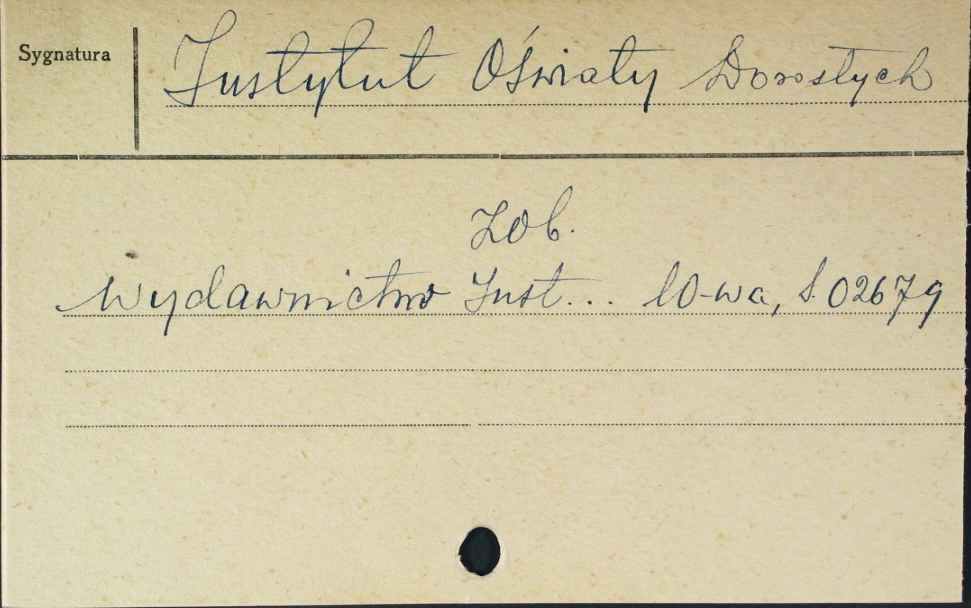 Sygnatura
Instytut Oświaty Dorosłych
Zob.
Wydawnictwo Inst... W-wa, S. 02679